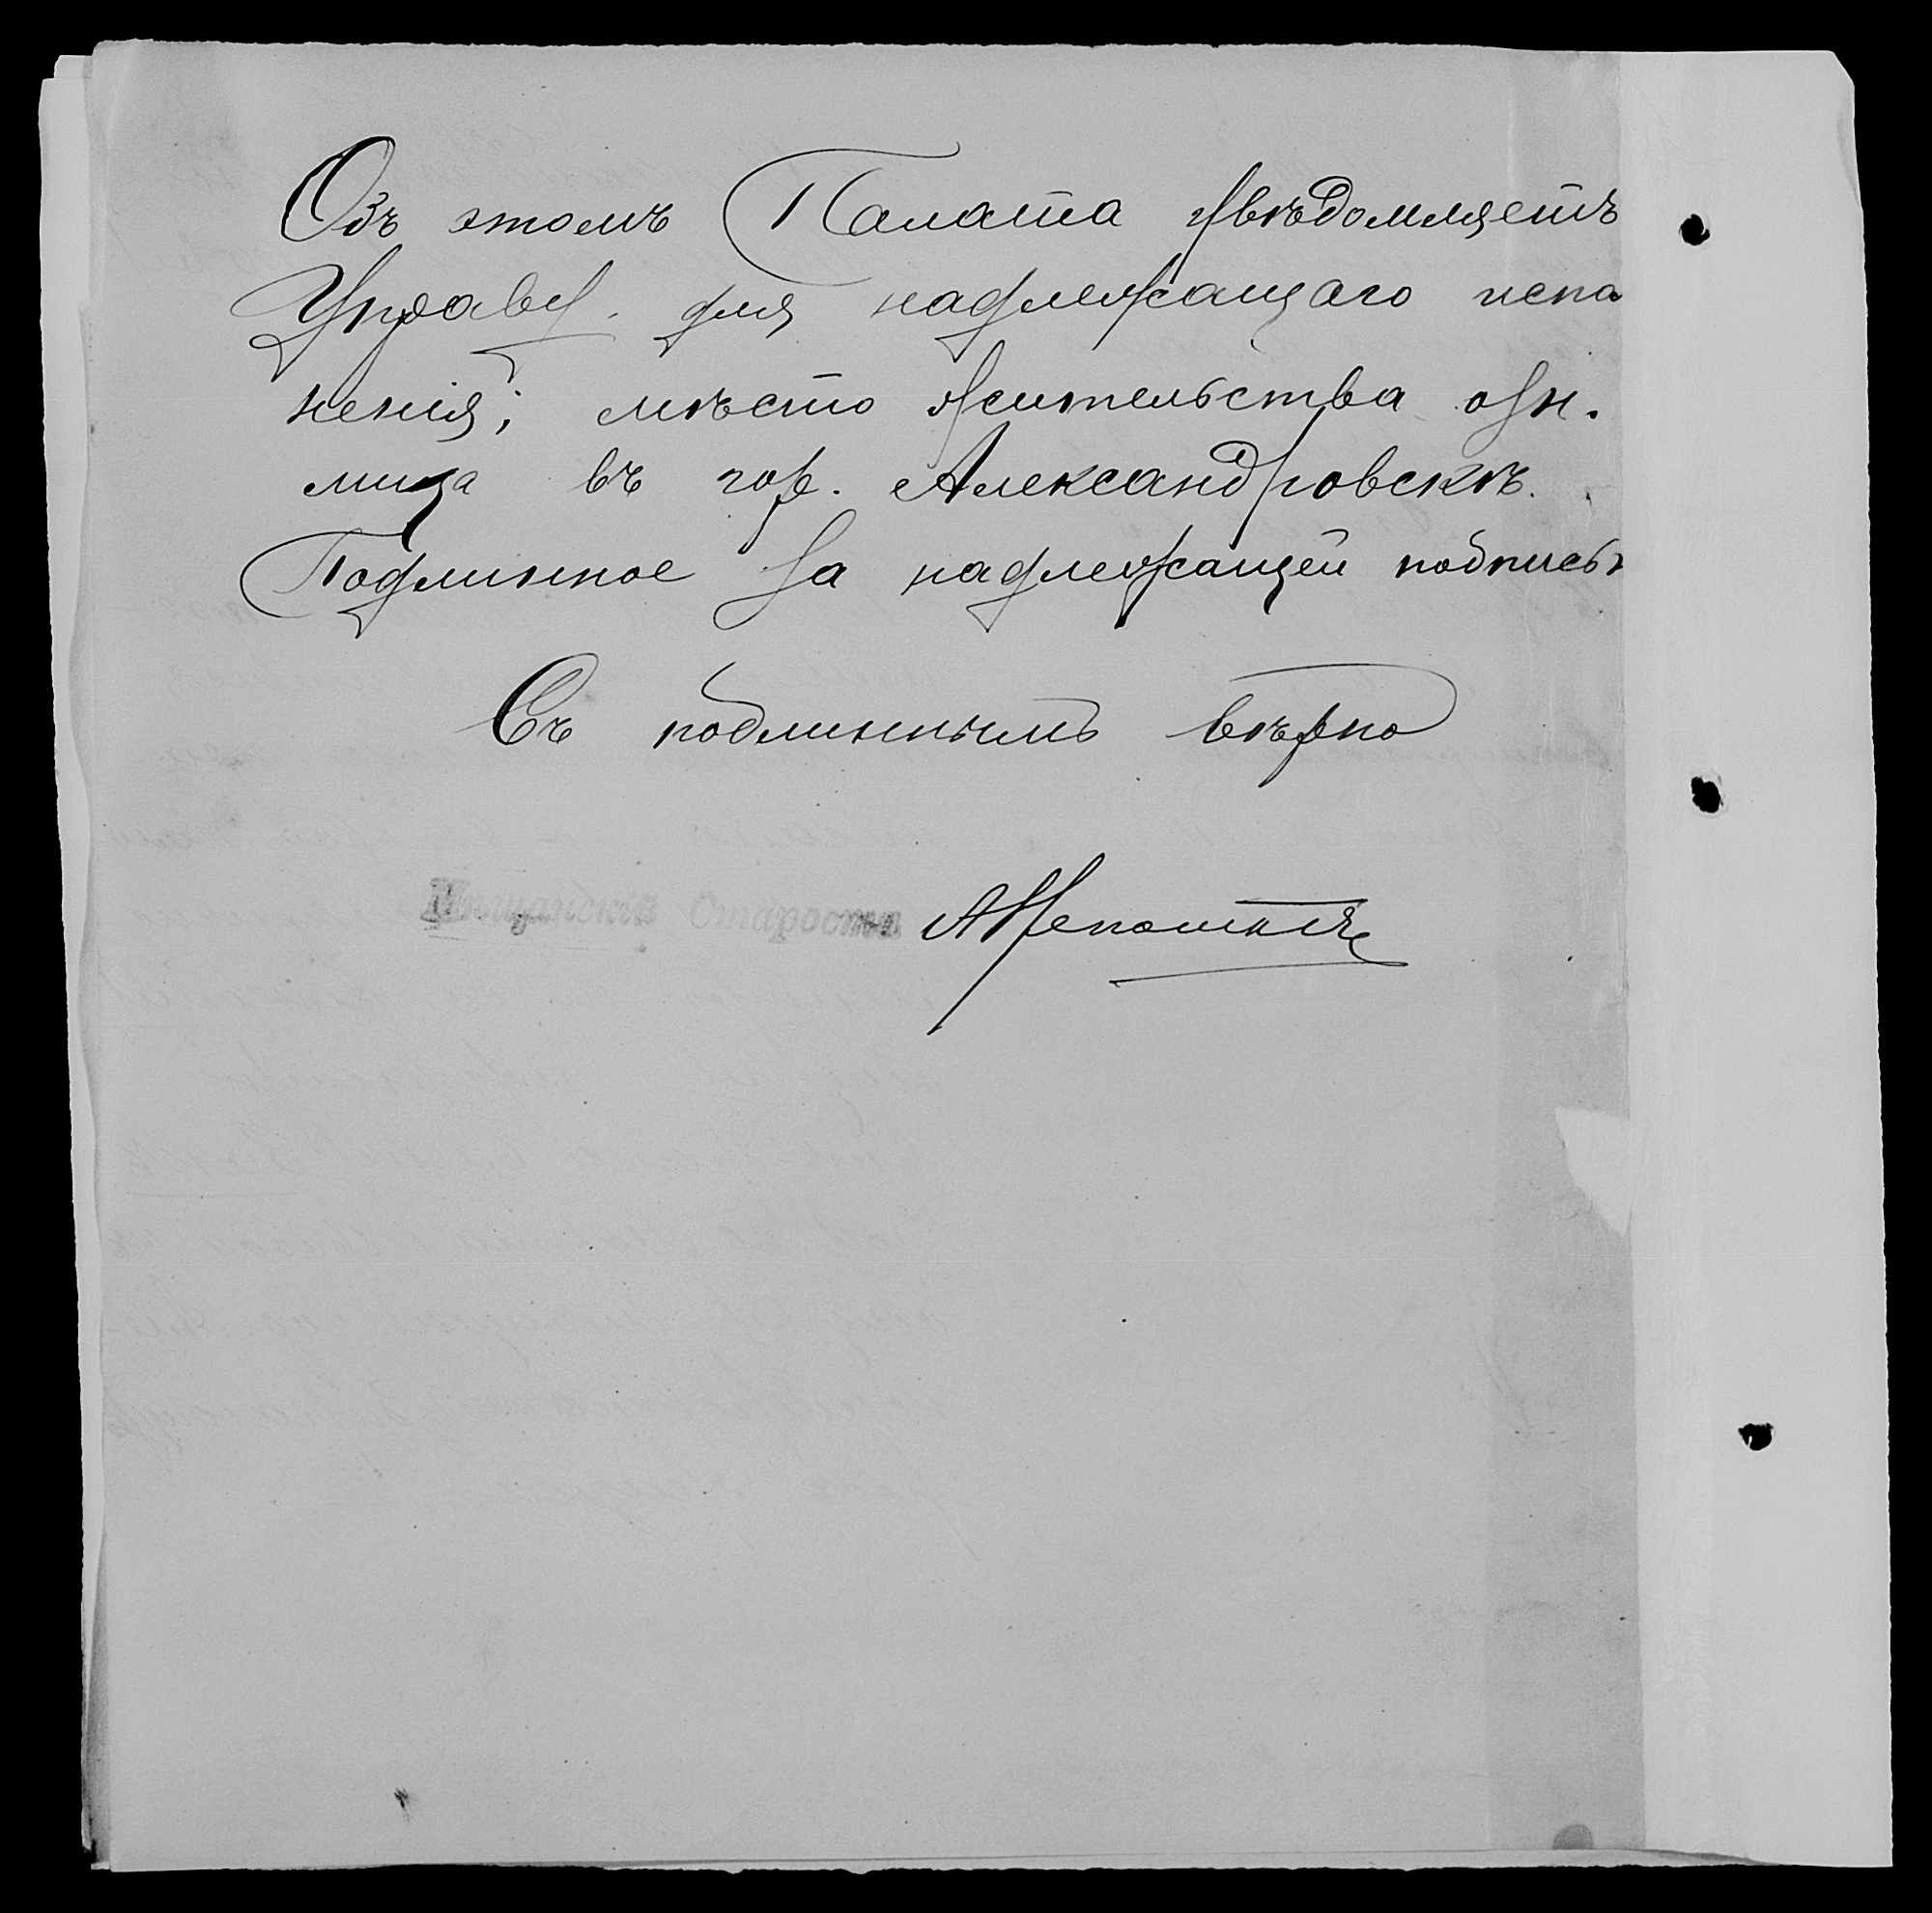 Объ этомъ Палата увѣдомляетъ
Управу для надлежащаго испо
ненія; мѣсто жительства озн.
лица въ гор. Александровскѣ.
Подлинное за надлежащей подписью
Съ подлиннымъ вѣрно
Мѣщанскій Староста